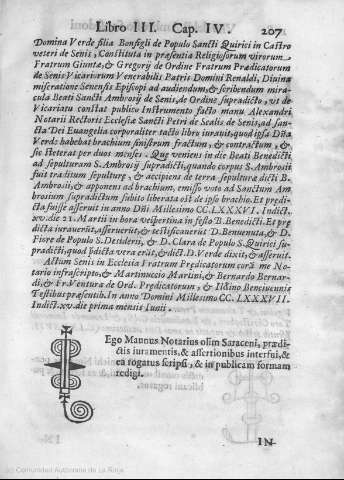 Libro III. Cap. IV. 207
Domina Verde filia Bonfigli de Populo Sancti Quirici in Castro
veteri de Senis, Constituta in præsentia Religiosorum virorum
Fratrum Giuntæ, & Gregorij de Ordine Fratrum Prædicatorum
de Senis Vicariorum Venerabilis Patris Domini Renaldi, Divina
miseratione Senensis Episcopi ad audiendum, & scribendum mira-
cula Beati Sancti Ambrosij de Senis, de Ordine supradicto, ut de
Vicariatu constat publico Instrumento facto manu Alexandri
Notarii Rectoris Ecclesiæ Sancti Petri de Scalis de Senis, ad san-
cta Dei Euangelia corporaliter tacto libro iurauit, quod ipsa Dña
Verds habebat brachium sinistrum fractum, & contractum, &
sic steterat per duos menses. Que veniens in die Beati Benedicti
ad sepulturam S. Ambrosij supradicti, quando corpus S. Ambrosii
fuit traditum sepulture, & accipiens de terra sepulture dicti B.
Ambrosii, & apponens ad brachium, emisso voto ad Sanctum Am
brosium supradictum subito liberata est de ipso brachio. Et predi-
cta fuisse asseruit in anno Dñi Millesimo CC. LXXXVI. Indict.
xv. die 21. Martii in hora vespertina in festo B. Benedicti. Et prę
dicta iurauerũt, asseruerũt, & testificauerũt D. Benuenuta, & D.
Fiore de Populo S. Desiderii, & D. Clara de Populo S. Quirici su-
pradicti, quod pdicta vera erãt, & dict. D. Verde dixit, & asseruit.
Actum Senis in Ecclesia Fratrum Prædicatorum corã me No-
tario infrascripto, & Martinuccio Martini, & Bernardo Bernar-
di, & Fr. Ventura de Ord. Prædicatorum, & Ildino Benciuennis
Testibus præsentib. In anno Domini Millesimo CC. LXXXVII.
Indict. xv. die prima mensis Iunii.
Ego Mannus Notarius olim Saraceni, prædi-
ctis iuramentis, & assertionibus interfui, &
ea rogatus scripsi, & in publicam formam
redigi.
IN-
(c) Comunidad Autónoma de La Rioja